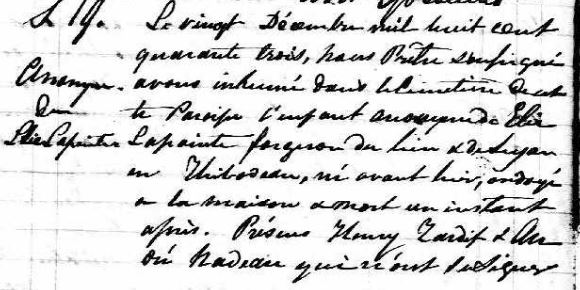 S. 19. Le vingt Décembre mil huit cent
quarante trois, nous Prêtre soussigné
Anonyme avons inhumé dans le Cimetière de cet
te Paroisse l'enfant anonyme de Elie
Elie Lapointe Lapointe forgeron du lieu & de
Thibodeau, né avant hier, ondoyé
a la maison & mort un instant
après. Présens Henry Tardif & An
dré Nadeau qui n'ont pu signer